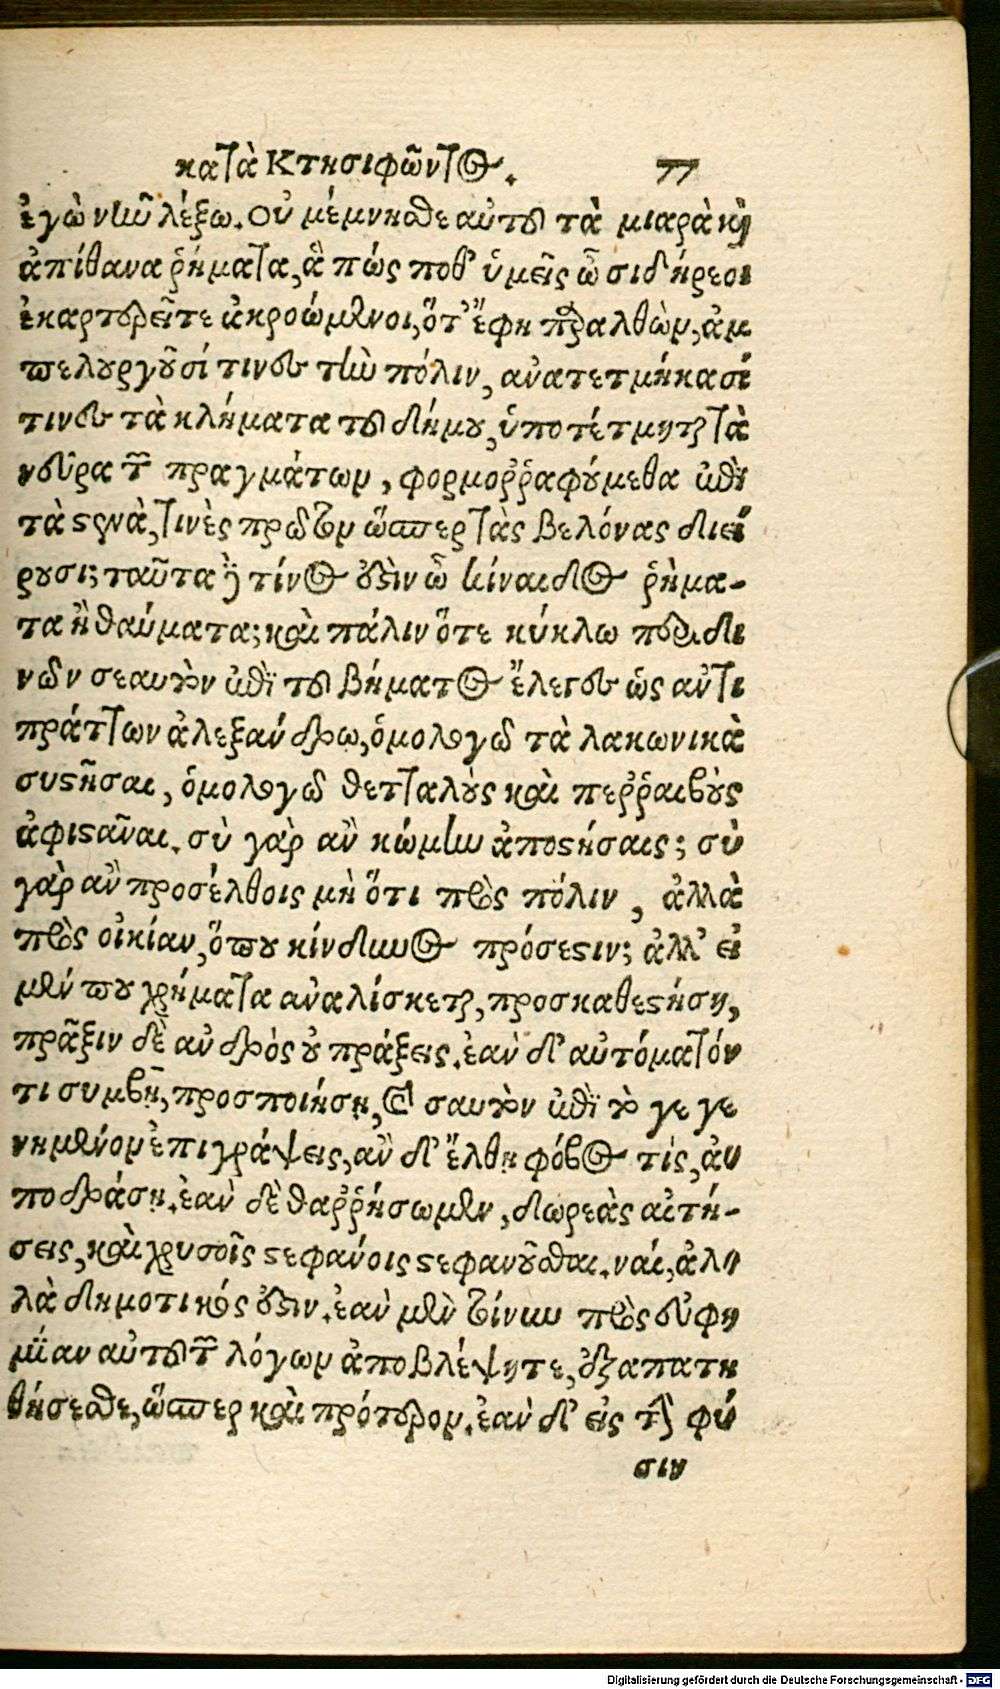 κατὰ Κτησιφῶντος. 77
ἐγὼ νῦν λέξω. Οὐ μέμνησθε αὐτοῦ τὰ μιαρὰ καὶ
ἀπίθανα ῥήματα, ἃ πώς ποθ' ὑμεῖς ὦ σιδήρεοι
ἐκαρτερεῖτε ἀκροώμενοι, ὅτ' ἔφη παρελθὼν, ἀμ
πελουργοῦσί τινες τὴν πόλιν, ἀνατετμήκασί
τινες τὰ κλήματα τοῦ δήμου, ὑποτέτμηται τὰ
νεῦρα τῶν πραγμάτων, φορμορῥαφούμεθα ἐπὶ
τὰ στενὰ, τινὲς πρῶτον ὥσπερ τὰς βελόνας διεί
ρουσι; ταῦτα δὲ τίνος ἐστὶν ὦ κίναιδος ῥήμα-
τα ἢ θαύματα; καὶ πάλιν ὅτε κύκλω περιδι
νῶν σεαυτὸν ἐπὶ τοῦ βήματος ἔλεγες ὡς ἀντι
πράττων ἀλεξάνδρω, ὁμολογῶ τὰ λακωνικὰ
συστῆσαι, ὁμολογῶ θετταλοὺς καὶ περῥαιβοὺς
ἀφιστᾶναι. σὺ γὰρ ἂν κώμην ἀποστήσαις; σὺ
γὰρ ἂν προσέλθοις μὴ ὅτι πρὸς πόλιν, ἀλλὰ
πρὸς οἰκίαν, ὅπου κίνδυνος πρόσεστιν; ἀλλ' εἰ
μέν που χρήματα ἀναλίσκεται, προσκαθεστήση,
πρᾶξιν δὲ ἀνδρὸς οὐ πράξεις. ἐὰν δ' αὐτόματόν
τι συμβῆ, προσποιήση, καὶ σαυτὸν ἐπὶ τὸ γεγε
νημένον ἐπιγράψεις, ἂν δ' ἔλθη φόβος τίς, ἀ
ποδράση. ἐὰν δὲ θαρῥήσωμεν, δωρεὰς αἰτή-
σεις, καὶ χρυσοῖς στεφάνοις στεφανοῦσθαι. ναί, ἀλ
λὰ δημοτικός ἐστιν. ἐὰν μὲν τοίνυν πρὸς εὐφη
μίαν αὐτοῦ τῶν λόγων ἀποβλέψητε, ἐξαπατη
θήσεσθε, ὥσπερ καὶ πρότερον. ἐὰν δ' εἰς τὴν φύ
σιν
Digitalisierung gefördert durch die Deutsche Forschungsgemeinschaft - DFG